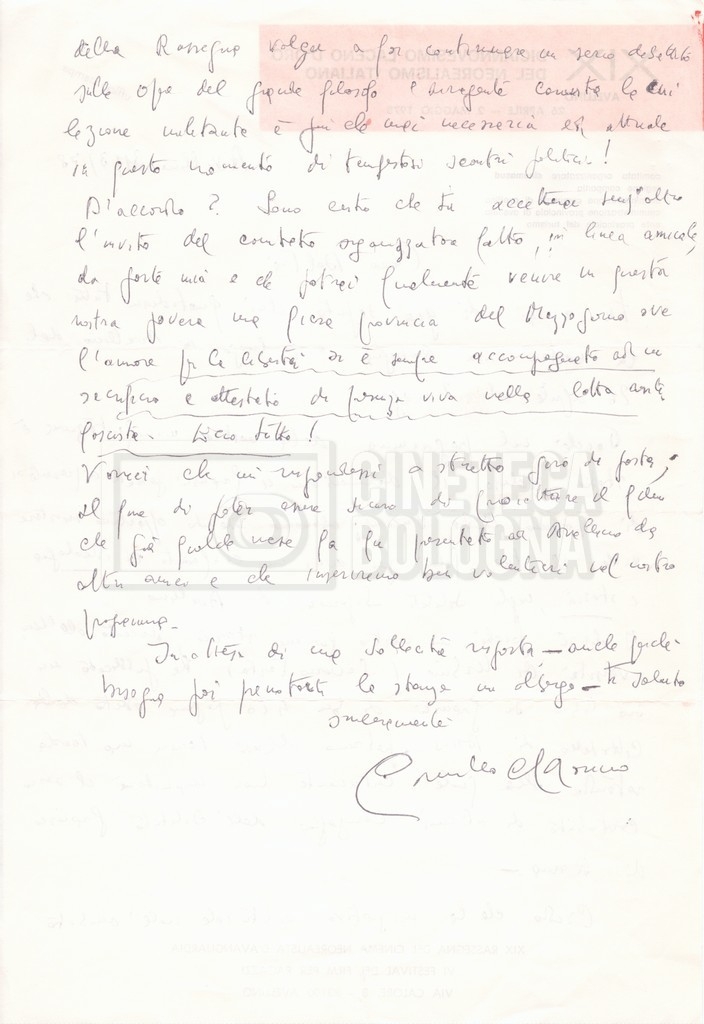 della Rassegna valga a far continuare un serio dibattito
sulle opere del grande filosofo e dirigente comunista la cui
lezione militante è più che mai necessaria ed attuale
in questo momento di tempestosi scontri politici!
D'accordo? Sono certo che tu accetterai senz'altro
l'invito del comitato organizzatore fatto, in linea amicale,
da parte mia e che potrai finalmente venire in questa
nostra povera ma fiera provincia del Mezzogiorno ove
l'amore per la libertà si è sempre accompagnato ad un
sacrificio e attestato di presenza viva nella lotta anti
fascista. Ecco tutto!
Vorrei che mi rispondessi a stretto giro di posta,
al fine di poter essere sicuro di proiettare il film
che già qualche mese fa fu presentato ad Avellino da
altri amici e che inseriremo ben volentieri nel nostro
programma.
In attesa di una sollecita risposta — anche perché
bisogna poi prenotarti la stanza in albergo — ti saluto
sinceramente
Camillo Marino
CINETECA
BOLOGNA
XIX
DICIANNOVESIMO LACENO D'ORO
DEL NEOREALISMO ITALIANO